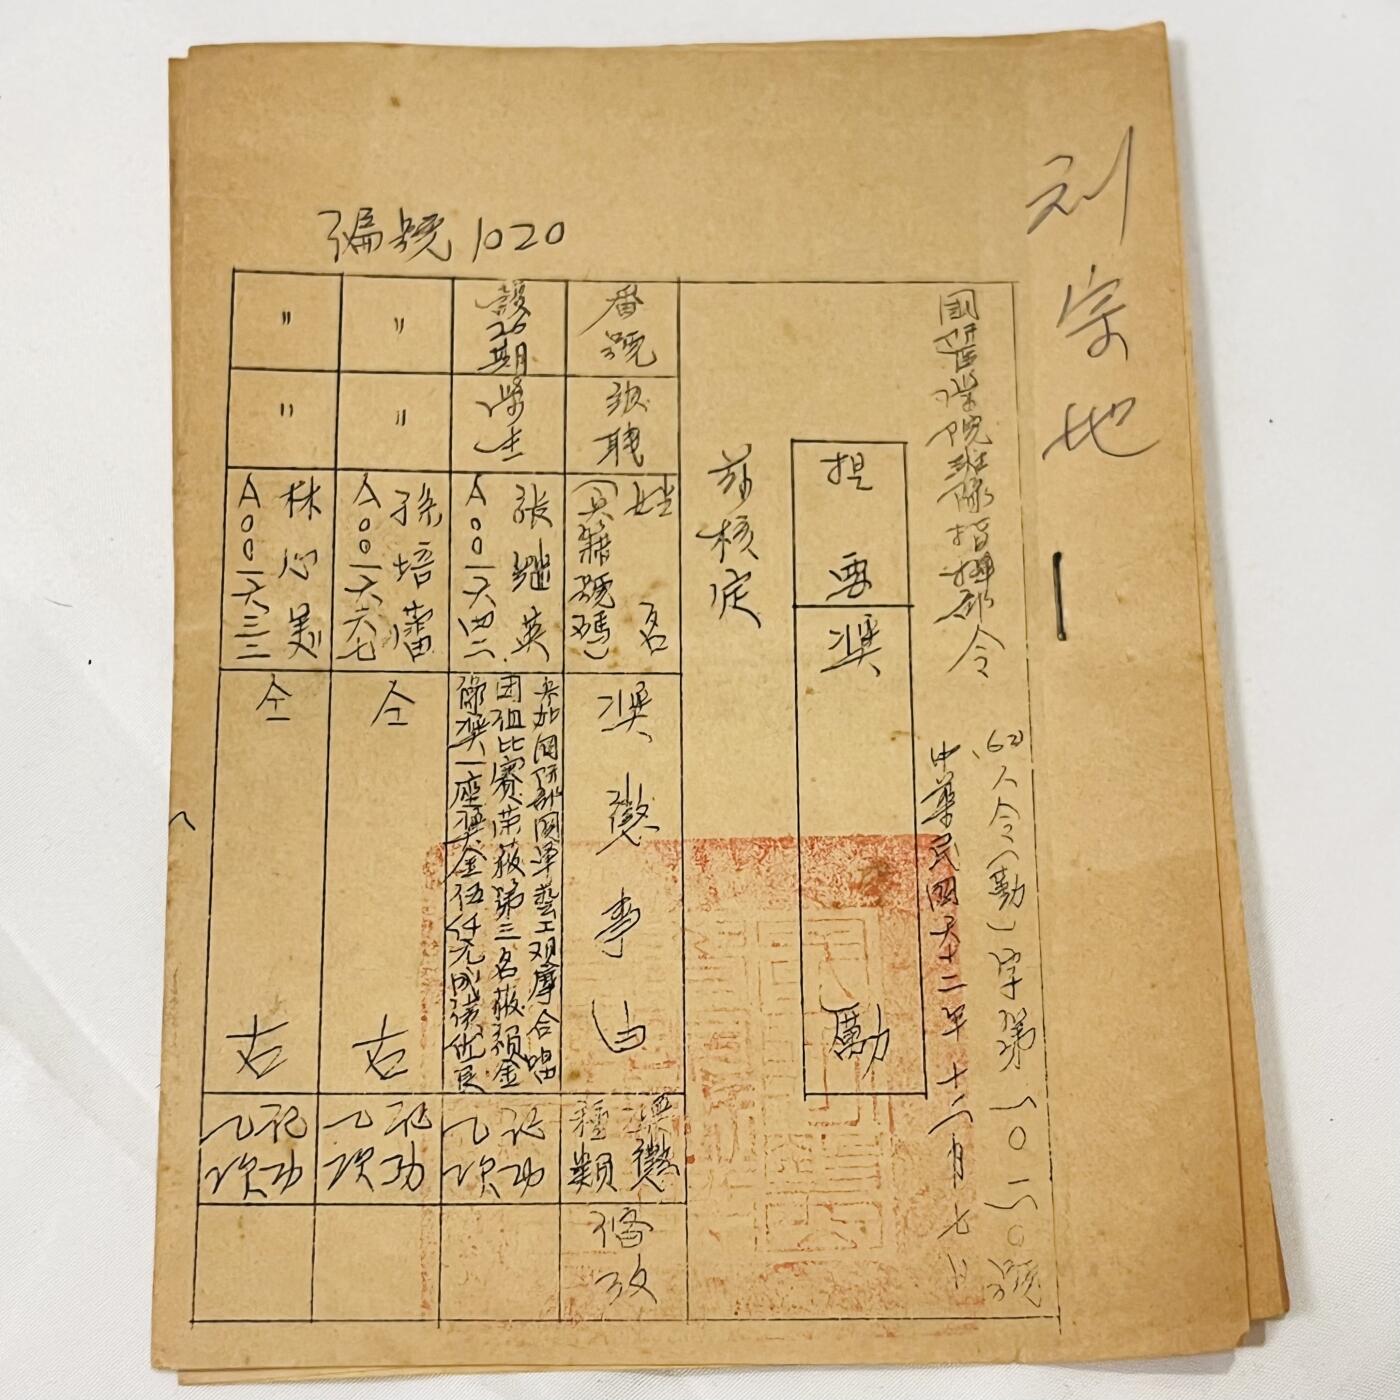 刘宗地
編號1020
國防醫學院班隊指揮部令
(62)人令(勤)字第一〇一一〇號
中華民國六十二年十二月七日
提要
獎勵
茲核定
番號
級職
姓名
(兵籍號碼)
獎懲事由
獎懲種類
備攷
護26期
學生
張繼英
A〇〇一六四二
參加國防部國軍藝工观摩合唱
团组比賽荣获第三名获頒金
像獎一座獎金伍仟元成績优良
记功乙次
〃
〃
孫培蕾
A〇〇一六六七
仝右
记功乙次
〃
〃
林心美
A〇〇一六三三
仝右
记功乙次